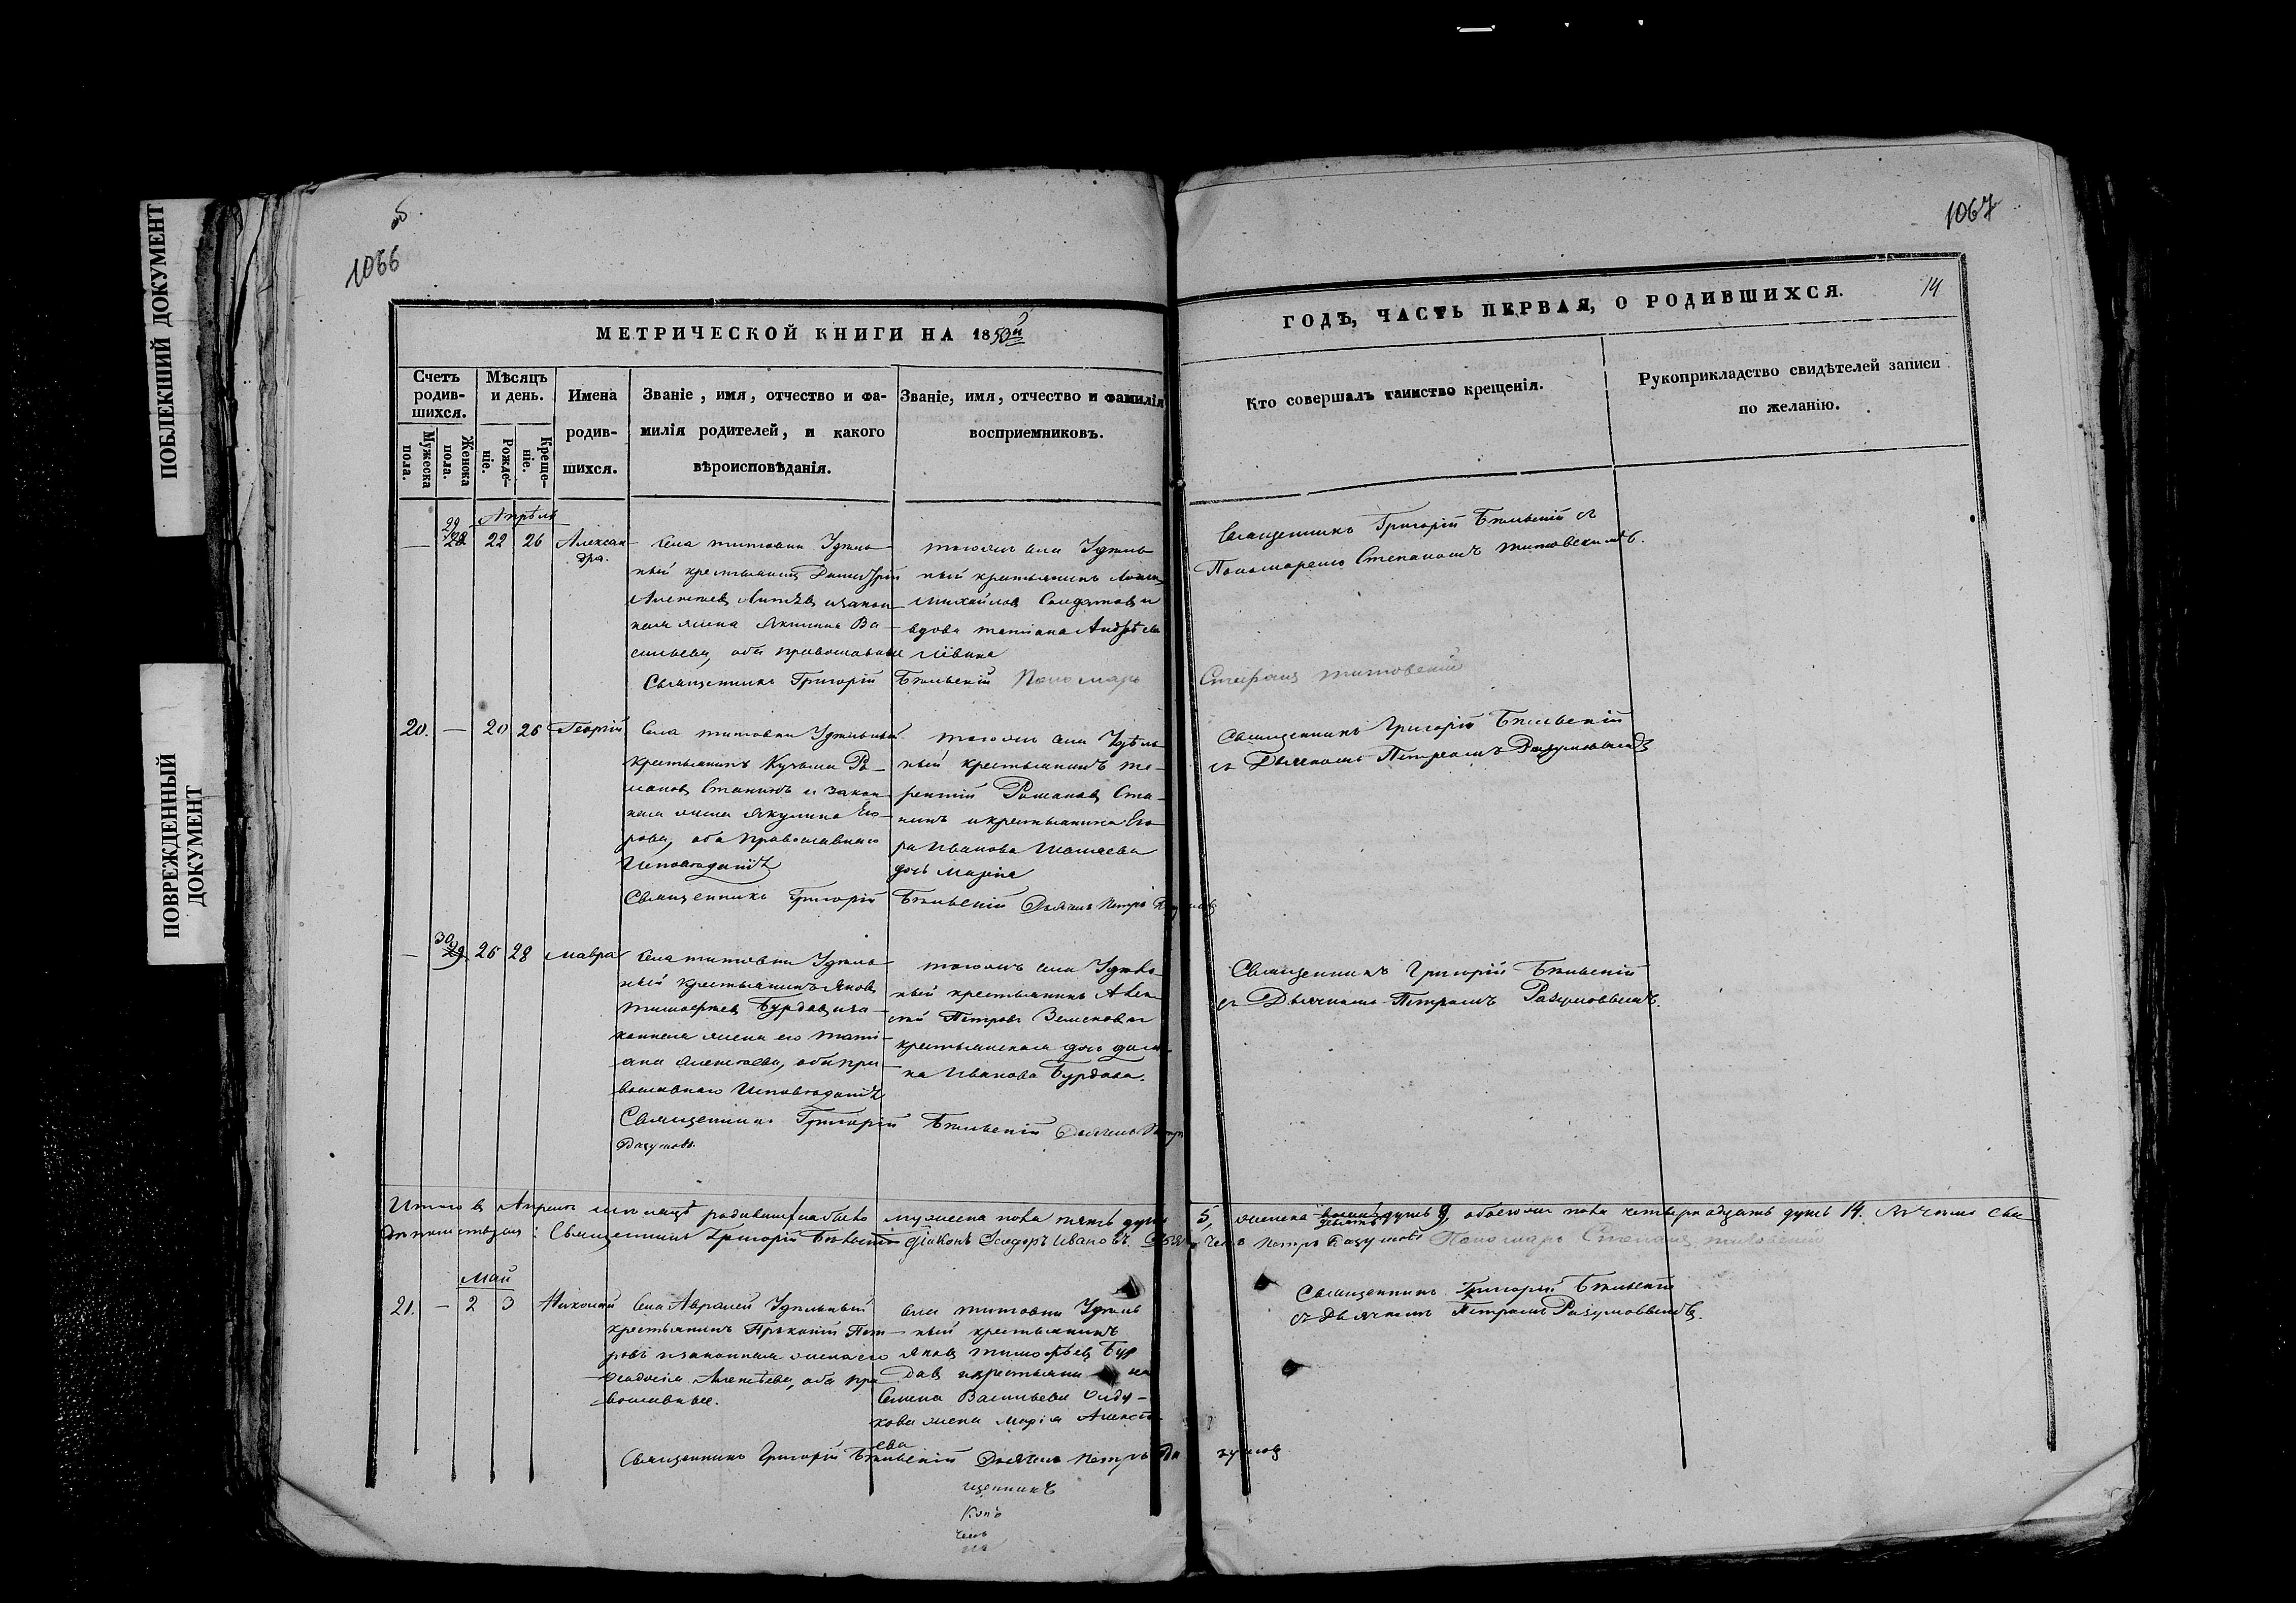 ПОБЛЕКШИЙ ДОКУМЕНТ
ПОВРЕЖДЕННЫЙ
ДОКУМЕНТ
об.
1066
1067
14
МЕТРИЧЕСКОЙ КНИГИ НА 1850й
ГОДЪ, ЧАСТЬ ПЕРВАЯ, О РОДИВШИХСЯ.
Счетъ
родив-
шихся.
Мужеска
пола.
Женска
пола.
Мѣсяцъ
и день.
Рожде-
ніе.
Креще-
ніе.
Имена
родив-
шихся.
Званіе, имя, отчество и фа-
милія родителей, и какого
вѣроисповѣданія.
Званіе, имя, отчество и фамилія
воспріемниковъ.
Кто совершалъ таинство крещенія.
Рукоприкладство свидѣтелей записи
по желанію.
Апрѣль
— 29 28 22 26 Алексан-
дра.
Села Титовки Удѣль-
ный крестьянинъ Димитрій
Алексѣевъ и закон-
ная жена Васильева, оба православные
тогожъ села Удѣль-
ный крестьянинъ
Михайловъ Солдатовъ и
вдова Татіана Андрѣева
Священникъ Григорій Бѣльскій съ
Пономаремъ Степаномъ Титовскимъ.
Священникъ Григорій Бѣльскій Пономарь Стефанъ Титовскій
20. — 20 26 Георгій
Села Титовки Удѣльный
крестьянинъ Кузьма Ро-
мановъ Станинъ и закон-
ная жена Акулина Его-
рова, оба Православнаго
Исповѣданія
тогожъ села Удѣль-
ный крестьянинъ Те-
рентій Романовъ Ста-
нинъ и крестьянина Его-
ра Иванова
дочь Марія
Священникъ Григорій Бѣльскій
съ Дьячкомъ Петромъ Разумовымъ
Священникъ Григорій Бѣльскій Дьячекъ Петръ Разумовъ
— 30 29 26 28 Мавра
Села Титовки Удѣль-
ный крестьянинъ Яковъ
Тимофеевъ Бурдовъ и за-
конная жена его Тати-
ана Алексѣева, оба пра-
вославнаго Исповѣданія
тогожъ села Удѣль-
ный крестьянинъ Алек-
сѣй Петровъ
крестьянская дочь
Иванова Бурдова.
Священникъ Григорій Бѣльскій
съ Дьячкомъ Петромъ Разумовымъ.
Священникъ Григорій Бѣльскій Дьячекъ Петръ
Разумовъ
Итого въ Апрелѣ мѣсяцѣ родившихся было мужеска пола пять душъ 5, женска девять душъ 9, обоего пола четырнадцать душъ 14.
Священникъ Григорій Бѣльскій Діаконъ Ѳеодоръ Ивановъ. Дьячекъ Петръ Разумовъ Пономарь Степанъ Титовскій
Май
21. — 2 3 Николай
Села Авралей Удѣльный
крестьянинъ Прокопій Пет-
ровъ и законная жена его
Ѳеодосія Алексѣева, оба пра-
вославные.
села Титовки Удѣль-
ный крестьянинъ
Яковъ Тимофѣевъ Бур-
довъ и крестьяни на
Семена Васильева
жена Марія Алексѣ-
ева
Священникъ Григорій Бѣльскій
съ Дьячкомъ Петромъ Разумовымъ.
Священникъ Григорій Бѣльскій Дьячекъ Петръ Разумовъ
щенникъ
конъ
чекъ